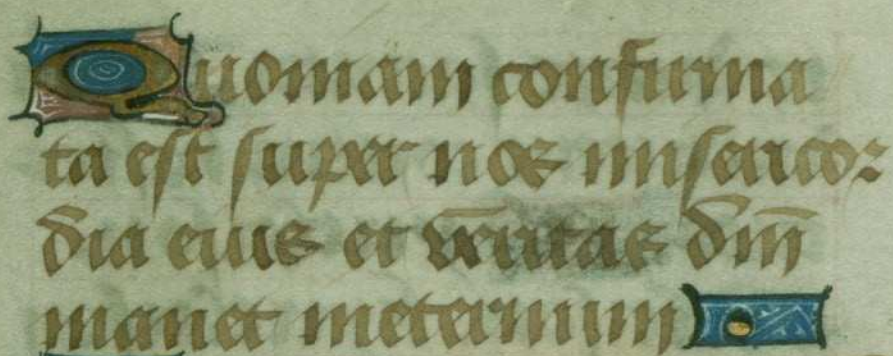 Quoniam confirma
ta est super nos misericor
dia eius et v̄eritas dn̄i
manet ineternum